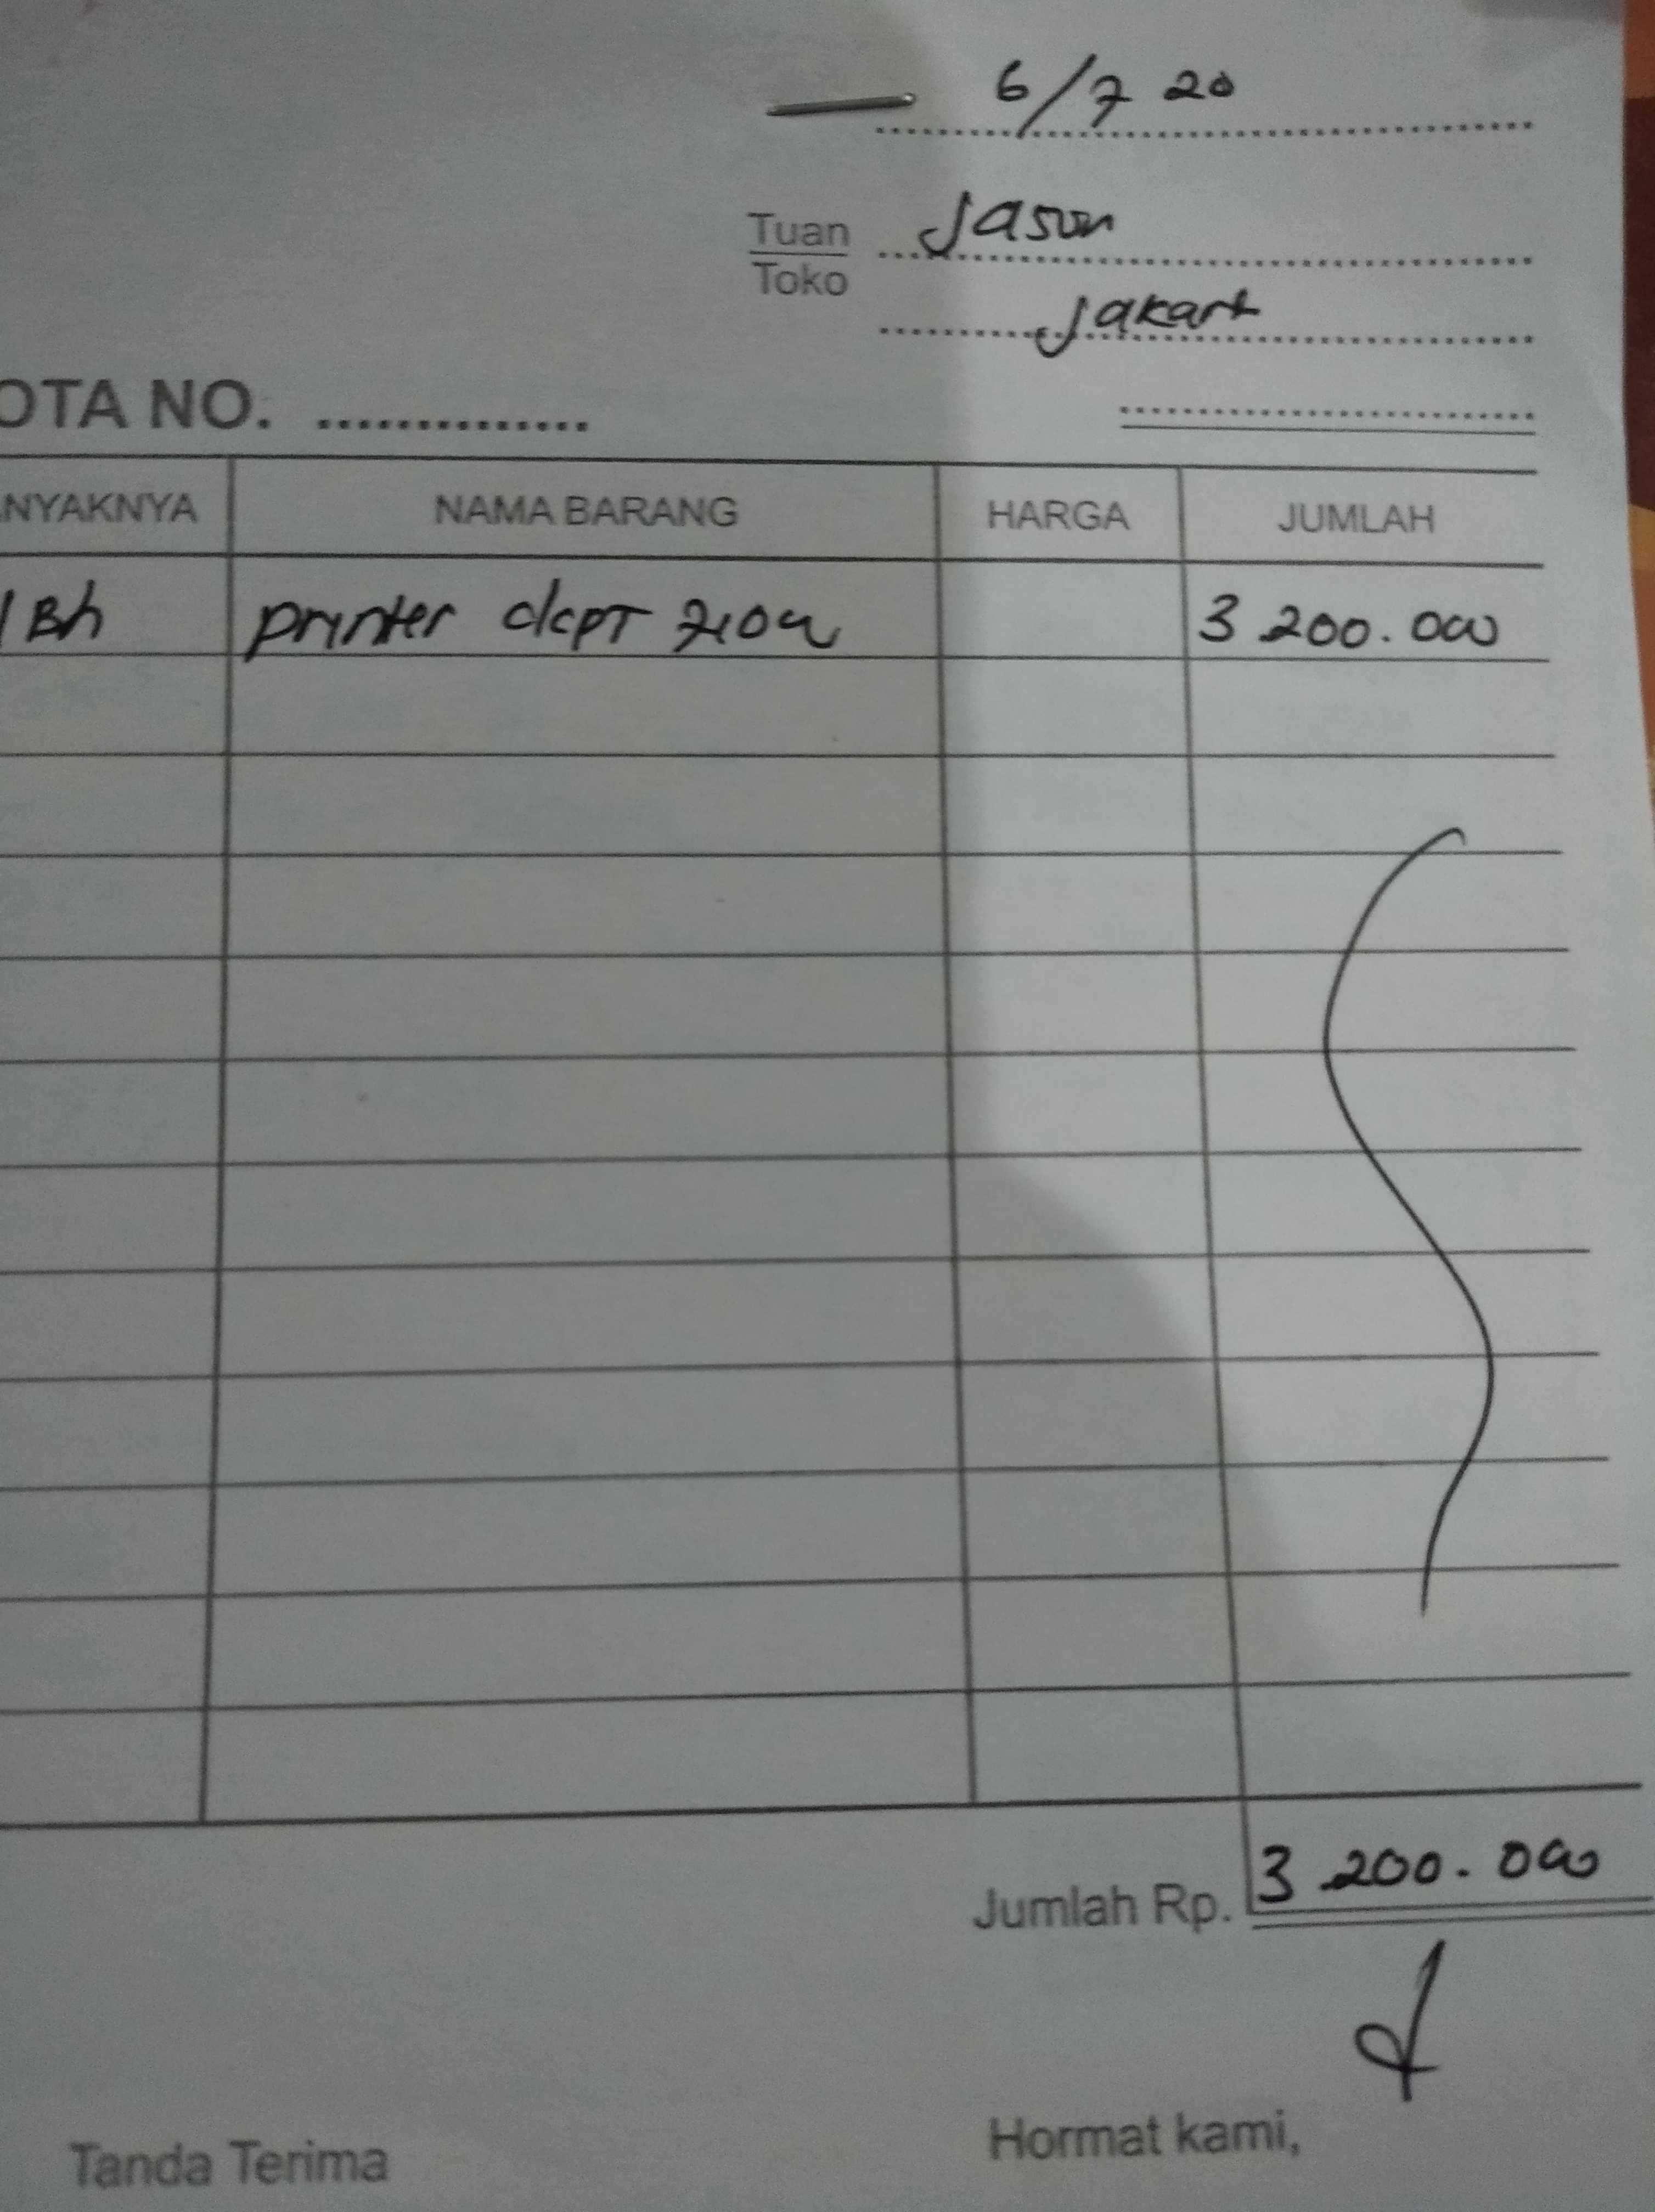 6/7 20
Tuan Jason
Toko
Jakart
OTA NO. ..............
NYAKNYA NAMA BARANG HARGA JUMLAH
1 Bh printer dcpT 710w 3 200.000
Jumlah Rp. 3 200.000
Tanda Terima Hormat kami,